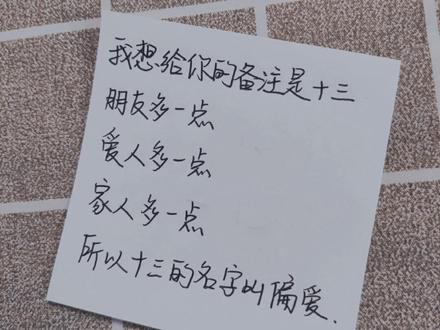 我想给你的备注是十三
朋友多一点
爱人多一点
家人多一点
所以十三的名字叫偏爱.